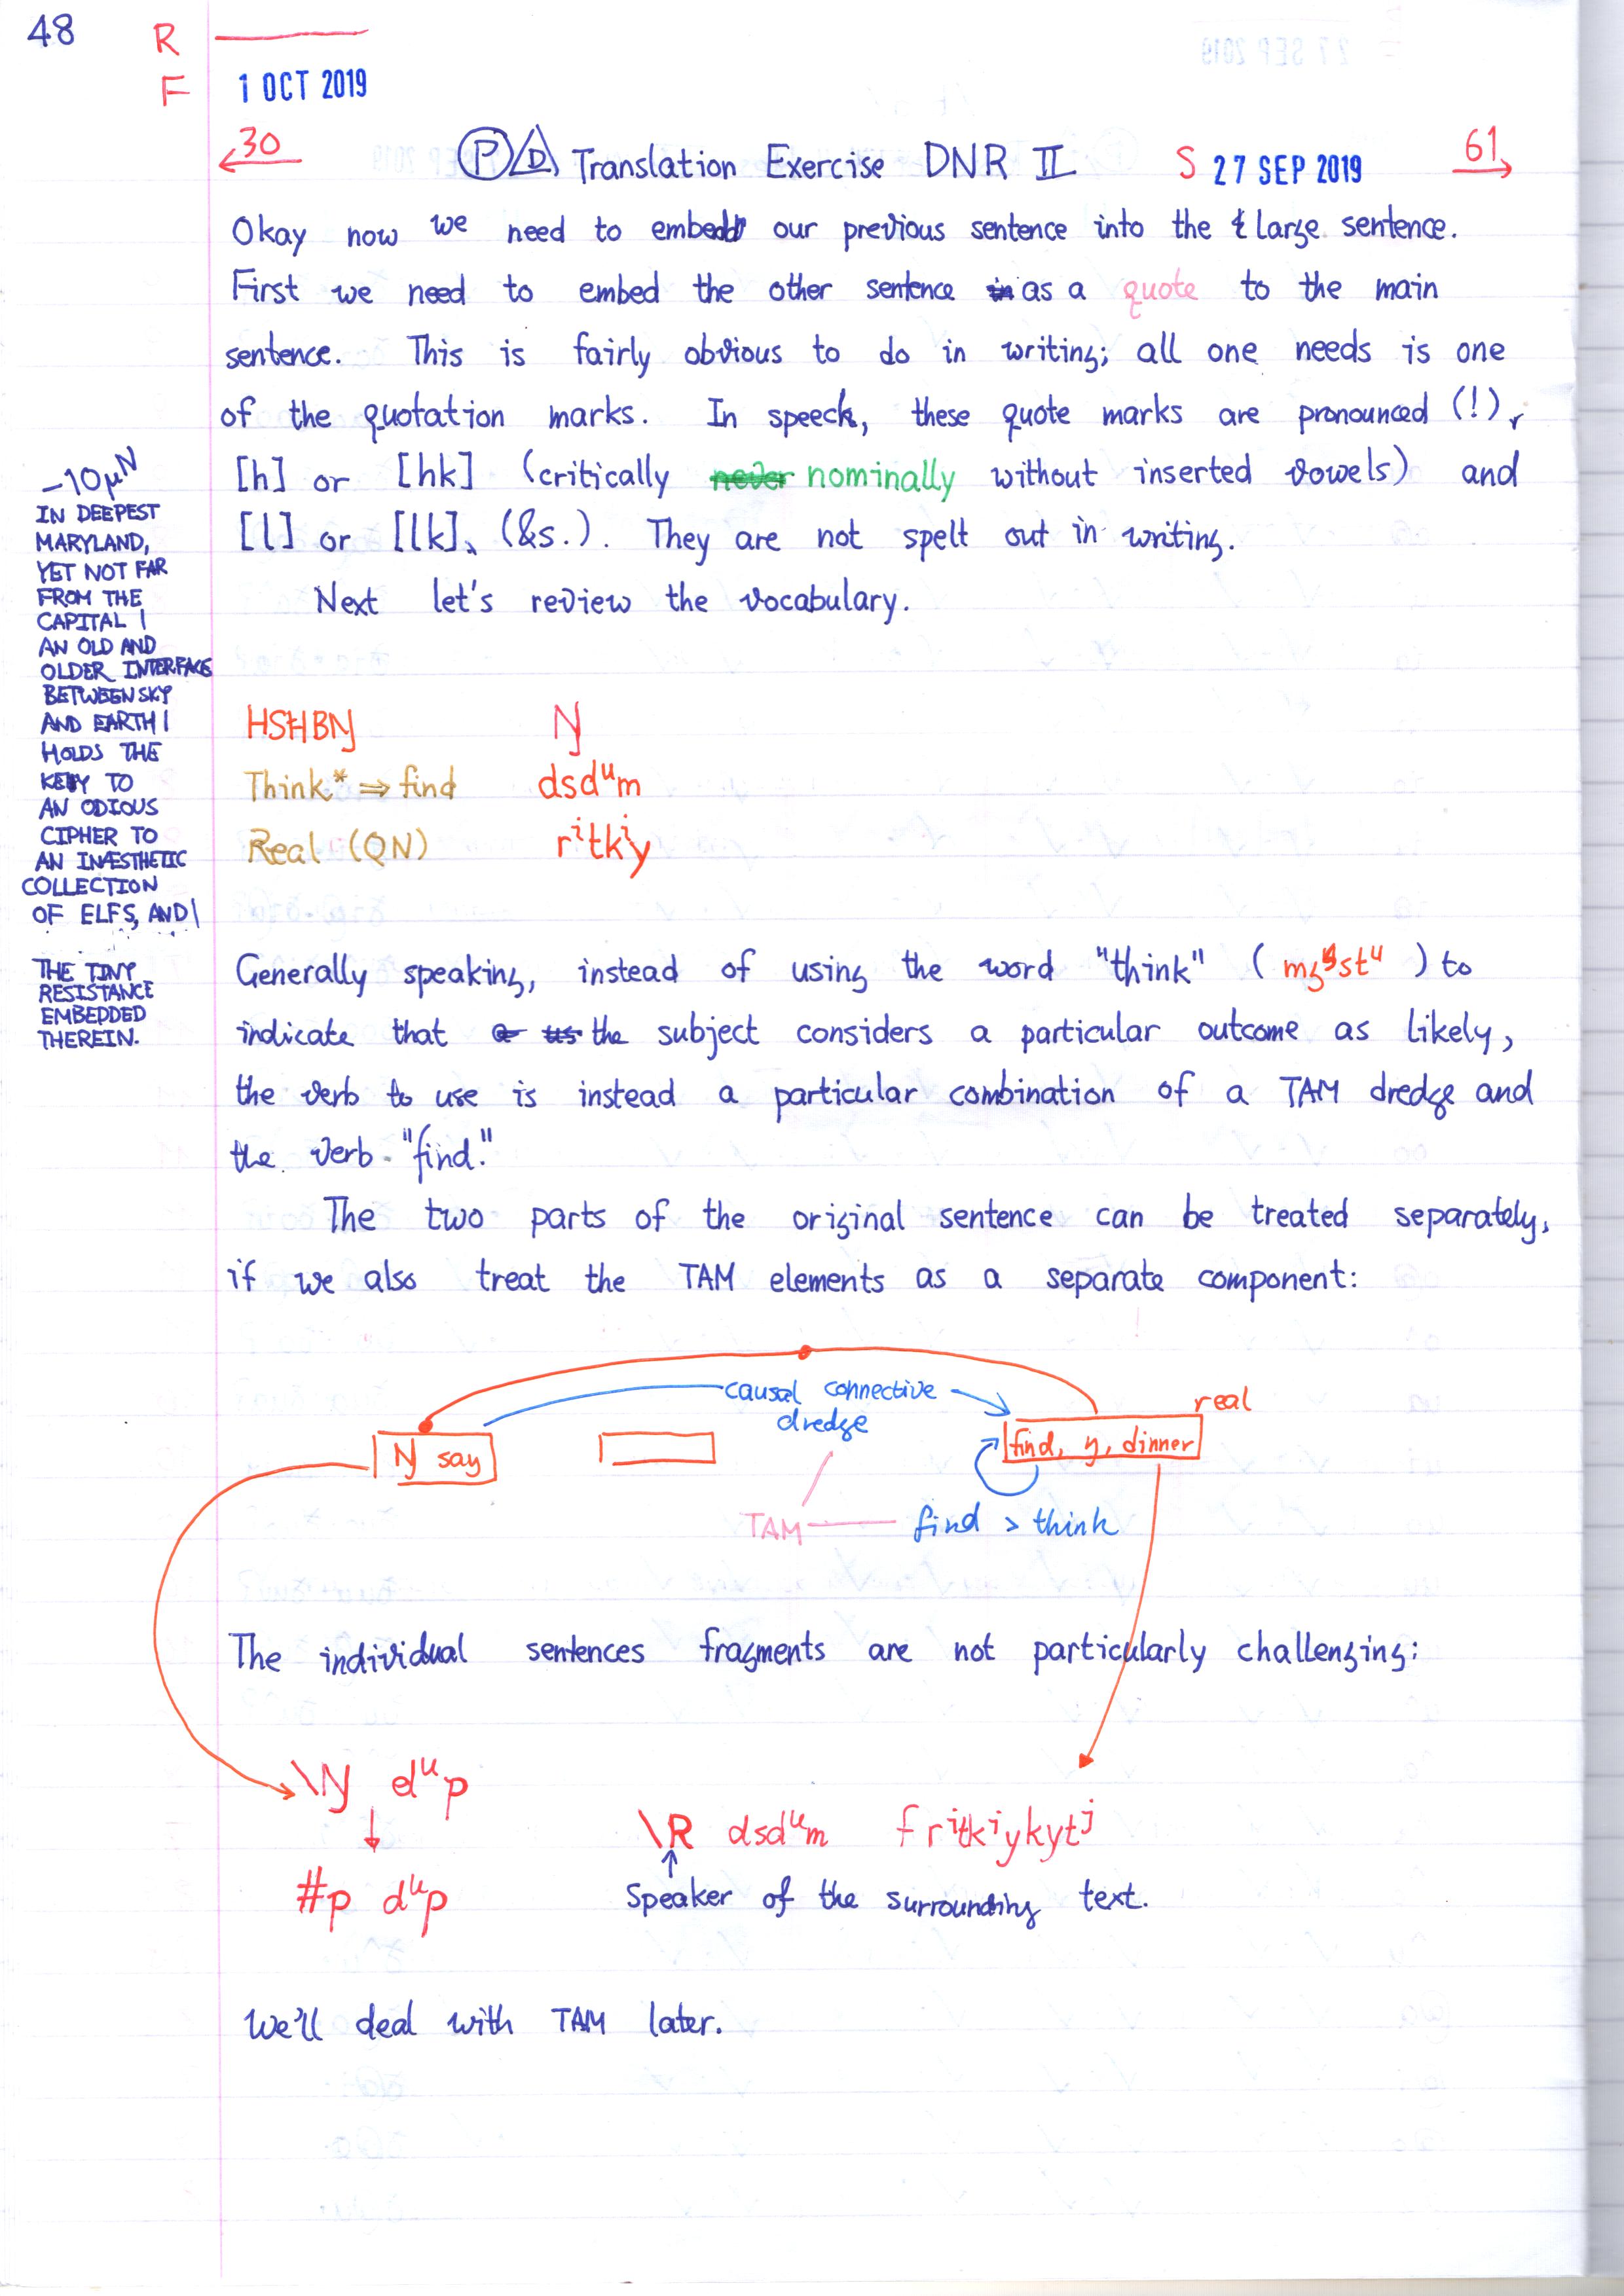 48
R
F 1 OCT 2019
30 P D Translation Exercise DNR II S 27 SEP 2019 61
Okay now we need to embed our previous sentence into the large sentence.
First we need to embed the other sentence as a quote to the main
sentence. This is fairly obvious to do in writing; all one needs is one
of the quotation marks. In speech, these quote marks are pronounced (!),
[h] or [hk] (critically never nominally without inserted vowels) and
[l] or [lk], (&s.). They are not spelt out in writing.
Next let's review the vocabulary.
-10μN
IN DEEPEST
MARYLAND,
YET NOT FAR
FROM THE
CAPITAL |
AN OLD AND
OLDER INTERFACE
BETWEEN SKY
AND EARTH |
HOLDS THE
KEY TO
AN ODIOUS
CIPHER TO
AN INÆSTHETIC
COLLECTION
OF ELFS, AND |
THE TINY
RESISTANCE
EMBEDDED
THEREIN.
Think* ⇒ find dsdᵘm
Real (QN) rⁱtkⁱy
Generally speaking, instead of using the word "think" ( ) to
indicate that the subject considers a particular outcome as likely,
the verb to use is instead a particular combination of a TAM dredge and
the verb "find."
The two parts of the original sentence can be treated separately,
if we also treat the TAM elements as a separate component:
causal connective
dredge
real
say
find, dinner
TAM
find > think
The individual sentences fragments are not particularly challenging:
dᵘp
#p dᵘp
\R dsdᵘm frⁱtkⁱykytʲ
Speaker of the surrounding text.
We'll deal with TAM later.